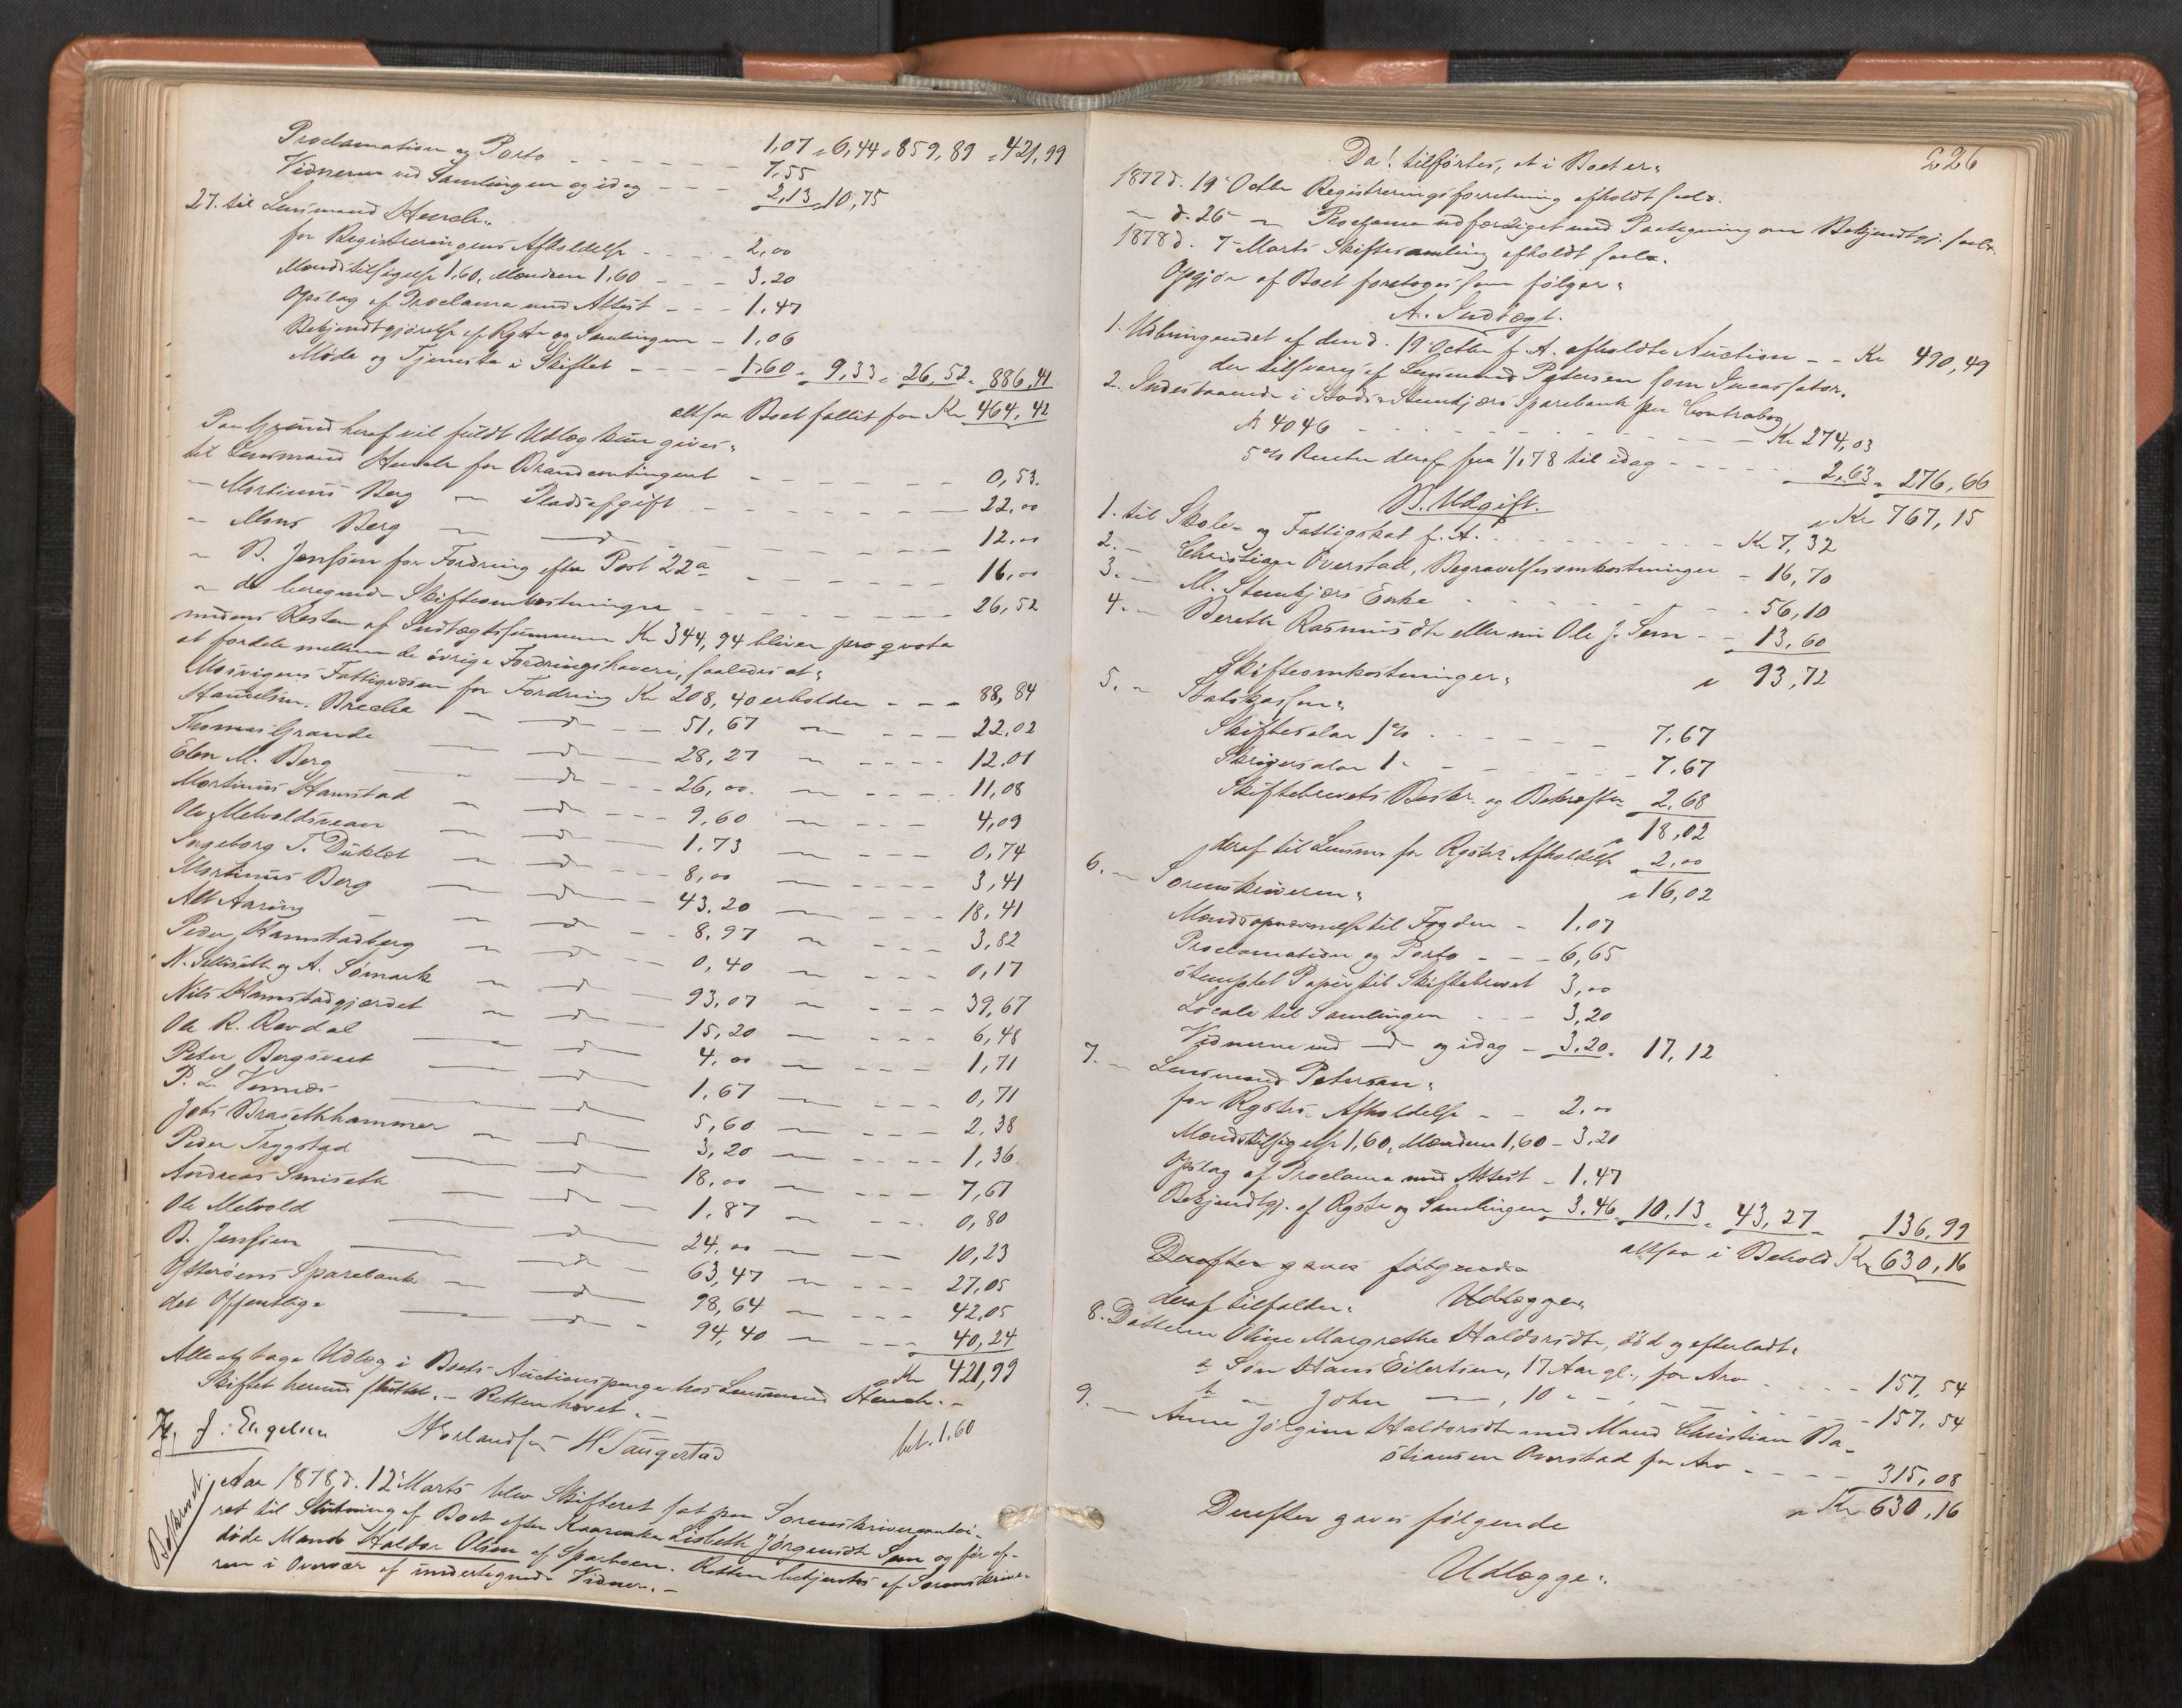 Proclamation og Porto - - - - - 1,07 " 6,44 " 859,89 " 421,99
7,55
Vidnerne ved Samlingen og idag - - - 2,13 " 10,75
27. til Lensmand Hench:
for Registreringens Afholdelse - - - - 2,00
Mændstilsigelse 1,60, Mændene 1,60 - - - 3,20
Opslag af Proclama med Attest - - - 1,47
Bekjendtgjørelse af Rgstr og Samlingen - 1,06
Møde og Tjeneste i Skiftet - - - - 1,60 " 9,33 " 26,52 " 886,41
altsaa Boet fallit for Kr 464,42
Paa Grund heraf vil fuldt Udlæg kun gives:
til Lensmand Hench for Brandcontingent - - - - - - 0,53.
— Mortinus Berg — Pladsafgift - - - - - - - 22,00
" Mons Berg — d - - - - - - 12,00
" B. Jenssen for Fordring efter Post 22a - - - - - 16,00
" de beregnede Skifteomkostninger - - - - - - - 26,52
medens Resten af Indtægtssummen Kr 344,94 bliver pro qvota
at fordele mellem de øvrige Fordringshavere, saaledes at:
Mosvigens Fattigvæsen for Fordring Kr 208,40 erholder - - - 88,84
Handelsm. Breche — d - - 51,67 — - - - 22,02
Thomas Grande — d — 28,27 — - - - - 12,01
Elen M. Berg — d - - - 26,00. — - - - - 11,08
Mortinus Hamstad — d - - - 9,60 — - - - 4,09
Ole Melvoldsveen — d — 1,73 — - - - 0,74
Ingeborg T. Duklæt — d - - - 8,00 — - - - - 3,41
Mortinus Berg — d — 43,20 — - - - 18,41
Alt Aaring — d - - 8,97 — - - - 3,82
Peder Hamstadberg — d — 0,40 — - - - 0,17
N. Selliseth og A. Sømark — d — 93,07 — - - - 39,67
Nils Hamstadgjærdet — d — 15,20 — - - - 6,48
Ole R. Revdal — d — 4,00 — - - - 1,71
Peter Bergsveet — d — 1,67 — - - - 0,71
P. L. Vennes — d — 5,60 — - - - - 2,38
Johs Brasethhammer — d — 3,20 — - - - - 1,36
Peder Trygstad — d — 18,00 — - - - - 7,67
Andreas Smiseth — d — 1,87 — - - - 0,80
Ole Melvold — d — 24,00 — — 10,23
B. Jenssen — d — 63,47 — - - - 27,05
Ytterøens Sparebank — d — 98,64 — - - - 42,05
det Offentlige — d - 94,40 — - - - 40,24
Kr 421,99
Alle at tage Udlæg i Boets Auctionspenge hos Lensmand Hench.-
Skiftet hermed sluttet. - Retten hævet. -
J: Engelsen H Saugestad bet. 1,60
Beskrevet.
Aar 1878, d. 12 Marts blev Skifteret sat paa Sorenskrivercontoi-
ret til Slutning af Boet efter Kaarenke Lisbeth Jørgensdtr Sem og før af-
døde Mand Haldor Olsen af Sparboen. Retten betjentes af Sorenskrive-
ren i Overvær af undertegnede Vidner. -
226
Da! tilførtes, at i Boet er:
1877 d. 19 Octbr Registreringsforretning afholdt saal.
— d. 26 — Proclama udfærdiget med Paategning om Bekjendtgj. saal.
1878 d. 7 Marts Skiftesamling afholdt saal.
Opgjør af Boet foretoges som følger:
A. Indtægt.
1. Udbringendet af den d. 19 Octbr f. A. afholdte Auction - - Kr 490,49
der tilsvares af Lensmand Petersen som Incassator.
2. Indestaaende i Stods Stenkjærs Sparebank per Contrabog
№ 4046 - - - - - - - - - - - Kr 274,03
5 % Renter deraf fra 1/1 78 til idag - - - - - - 2,63 " 276,66
" Kr 767,15
B. Udgift.
1. til Skole- og Fattigskat f. A. - - - - - - - - Kr 7,32
2. — Christian Overstad, Begravelsesomkostninger - 16,70
3. — M. Stenkjærs Enke - - - - - - - - - 56,10
4. — Bereth Rasmusdtr eller nu Ole J. Sem - - 13,60
" 93,72
Skifteomkostninger:
5. — Statskassen:
Skiftesalær 1 % - - - - - - 7,67
Skriversalær 1 " - - - - - - 7,67
Skiftebrevets Beskr. og Bekræftn. 2,68
" 18,02
deraf til Lensm. for Rgstrs Afholdelse 2,00
" 16,02
6. — Sorenskriveren:
Mændsopnævnelse til Fogden - 1,07
Proclamation og Porto - - - 6,65
Stemplet Papir til Skiftebrevet 3,00
Locale til Samlingen - - - 3,20
Vidnerne ved — d — og idag - 3,20 " 17,12
7. — Lensmand Petersen:
for Rgstrs Afholdelse - - 2,00
Mændstilsigelse 1,60, Mændene 1,60 - 3,20
Opslag af Proclama med Attest - 1,47
Bekjendtgj. af Rgstr og Samlingen 3,46 10,13 " 43,27 " 136,99
altsaa i Behold Kr 630,16
Derefter gaves følgende
Udlægge:
deraf tilfalder:
8. Datteren Oline Margrethe Haldorsdtr, død og efterladt:
a Søn Hans Eilertsen, 17 Aar gl., for Arv - - - - 157,54
b — John — , 10 " — - - - - - - 157,54
9. — Anne Jørgine Haldorsdtr med Mand Christian Ba-
stiansen Overstad for Arv - - - - - 315,08
" Kr 630,16
Derefter gaves følgende
Udlægge: